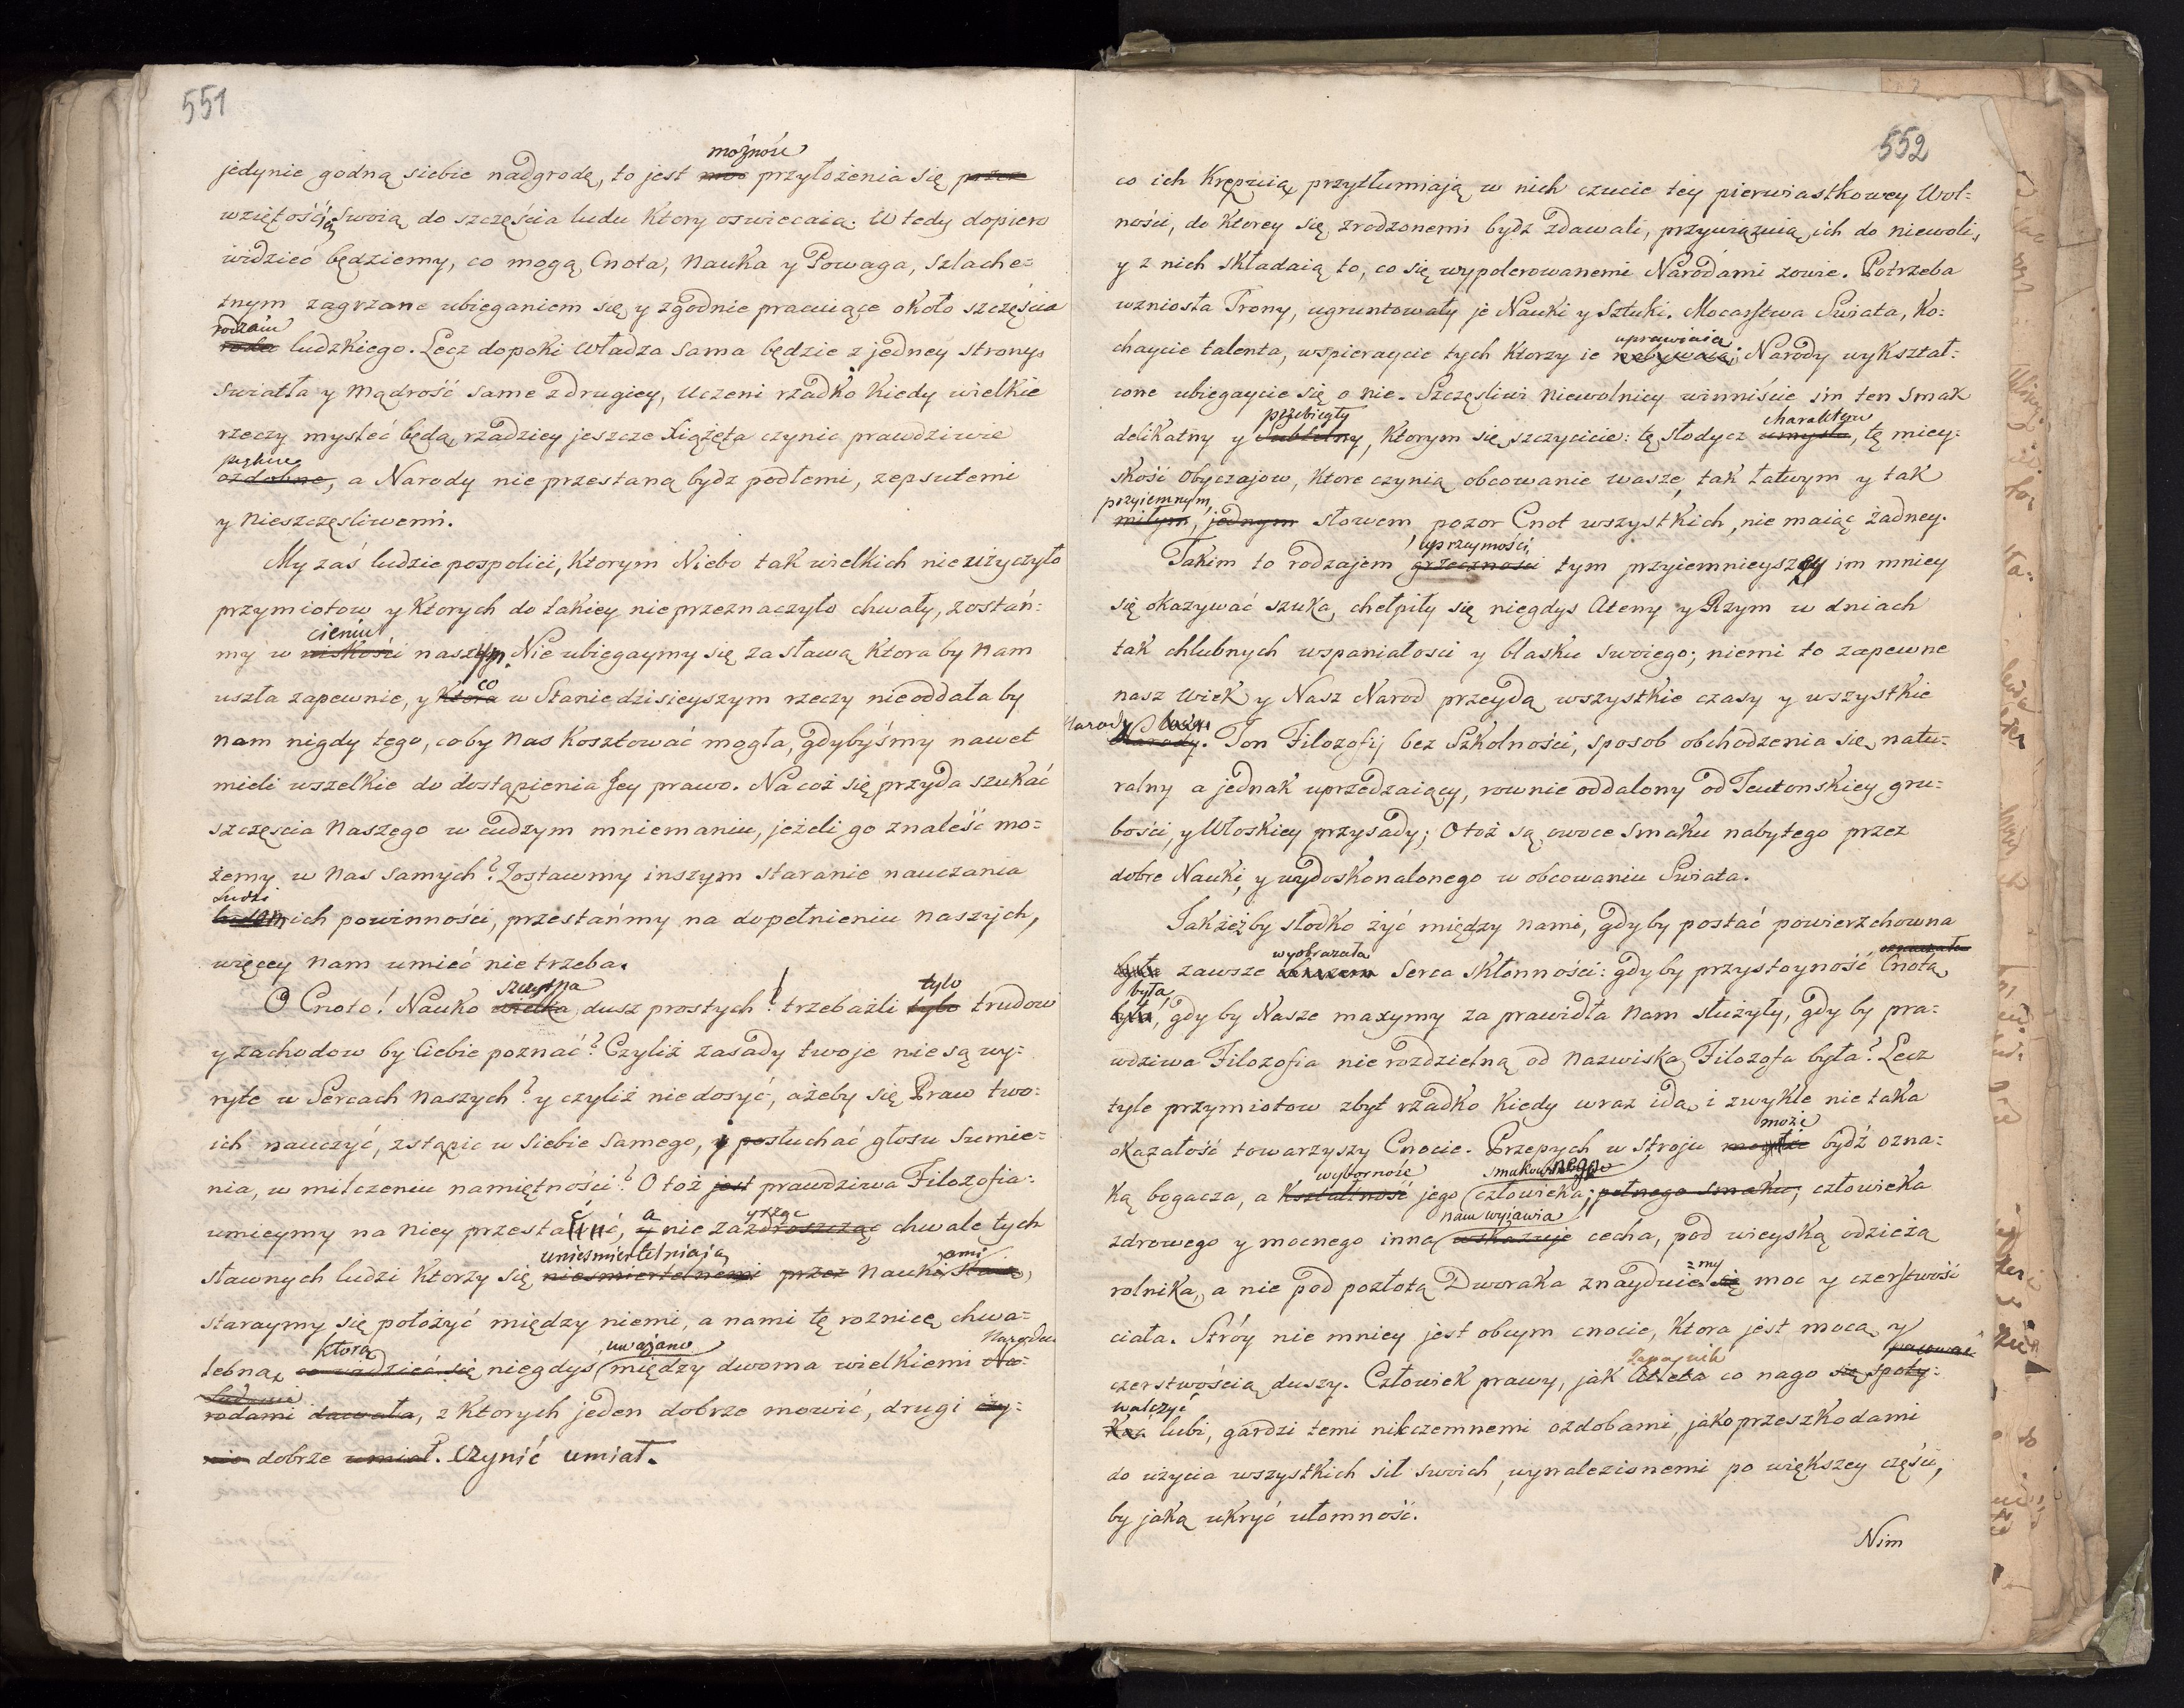 551
możność
jedynie godną siebie nadgrodę, to jest przyłożenia się przez
wziętością swoią do szczęścia ludu ktory oswiecaią. W tedy dopiero
widzieć będziemy, co mogą, Cnota, Nauka y Powaga, szlache=
tnym zagrzane ubieganiem się, y zgodnie pracuiące około szczęścia
rodzaiu
rodu ludzkiego. Lecz dopoki władza sama będzie z jedney strony,
Swiatła y Mądrość same z drugiey, Uczeni rzadko kiedy wielkie
rzeczy mysleć będą, rzadziey jeszcze Xiążęta czynic prawdziwie
piękne
ozdobne, a Narody nie przestaną bydz podłemi, zepsutemi
y nieszczęsliwemi.
My zaś ludzie pospolici, ktorym Niebo tak wielkich nie użyczyło
przymiotow y ktorych do takiey nie przeznaczyło chwały, zostań=
cieniu
my w niskości naszym. Nie ubiegaymy się za sławą ktora by nam
co
uszła zapewnie, y ktora w Stanie dzisieyszym rzeczy nie oddała by
nam nigdy tego, co by nas kosztować mogła, gdybyśmy nawet
mieli wszelkie do dostąpienia Jey prawo. Na coż się przyda szukać
szczęscia naszego w cudzym mniemaniu, jeżeli go znaleść mo=
żemy w nas samych? Zostawmy inszym staranie nauczania
Ludzi
ludom ich powinności, przestańmy na dopełnieniu naszych,
więcey nam umieć nie trzeba.
szczytna tylo
O Cnoto! Nauko wielka dusz prostych! trzebażli tylo trudow
y zachodow by Ciebie poznać? Czyliż zasady twoje nie są wy=
ryte w Sercach naszych? y czyliż nie dosyć, ażeby się Praw two=
ich nauczyć, zstąpic w siebie samego, y posłuchać głosu Sumie=
nia, w milczeniu namiętności? O toż jest prawdziwa Filozofia:
ć a
umieymy na niey przestać, y nie zazdroszcząc chwale tych
unieśmiertelniają ami
sławnych ludzi ktorzy się niesmiertelnemi przez nauki staią,
staraymy się położyć między niemi, a nami tę roznicę chwa=
którą uważano Narodami
lebną, co widzieć się niegdys między dwoma wielkiemi Na=
Ludami
rodami dawała, z ktorych jeden dobrze mowić, drugi czy=
nic dobrze umiał. Czynić umiał.
552
co ich krępuią, przytłumiają w nich czucie tey pierwiastkowey Wol=
ności, do ktorey się zrodzonemi bydz zdawali, przywiązuią ich do niewoli,
y z nich składaią to, co się wypolerowanemi Narodami zowie. Potrzeba
wzniosła Trony, ugruntowały je Nauki y Sztuki. Mocarstwa Swiata, ko=
uprawiaią
chaycie talenta, wspieraycie tych ktorzy ie nabywaią; Narody wykształ=
cone ubiegaycie się o nie. Szczęsliwi Niewolnicy winniście im ten smak
przebiegły charakteru
delikatny y Subtelny, ktorym się szczycicie: tę słodycz umysłu, tę miey=
skość obyczajow, ktore czynią obcowanie wasze, tak łatwym y tak
przyiemnym,
miłym, jednym słowem pozor Cnot wszystkich, nie maiąc żadney.
uprzeymości
Takim to rodzajem grzeczności tym przyiemnieyszey im mniey
się okazywać szuka, chełpiły się niegdys Ateny y Rzym w dniach
tak chlubnych wspaniałosci y blasku swoiego; niemi to zapewne
nasz Wiek y Nasz Narod przeydą wszystkie czasy y wszystkie
Narody
Narody. Ton Filozofij bez Szkolności, sposob obchodzenia się, natu=
ralny a jednak uprzedzaiący, rownie oddalony od Teutonskiey gru=
bości, y Włoskiey przysady; Otoż są owoce smaku nabytego przez
dobre Nauki, y wydoskonalonego w obcowaniu Swiata.
Jakżeżby słodko żyć między nami, gdy by postać powierzchowna
wyobrażała oznaczała
była zawsze obrazem Serca skłonności: gdy by przystoyność Cnotą
była
była, gdy by Nasze maxymy za prawidła nam służyły, gdy by pra=
wdziwa Filozofia nie rozdzielną od nazwiska Filozofa była? Lecz
tyle przymiotow zbyt rzadko kiedy wraz idą, i zwykle nie taka
może
okazałość towarzyszy Cnocie. Przepych w stroju bydź ozna=
wyborność smakownego
ką bogacza, a kształtność jego człowieka; pełnego smaku; człowieka
nam wyjawia
zdrowego y mocnego inna wskazuje cecha, pod wieyską odzieżą
=my
rolnika, a nie pod pozłotą Dworaka znayduie się moc y czerstwość
ciała. Stróy nie mniey jest obcym cnocie, ktora jest mocą y
Zapaśnik pasować
czerstwością duszy. Człowiek prawy, jak Atleta co nago się spoty=
walczyć
kać lubi, gardzi temi nikczemnemi ozdobami, jako przeszkodami
do użycia wszystkich sił swoich, wynalezionemi po większey części,
by jaką ukryć ułomność.
Nim